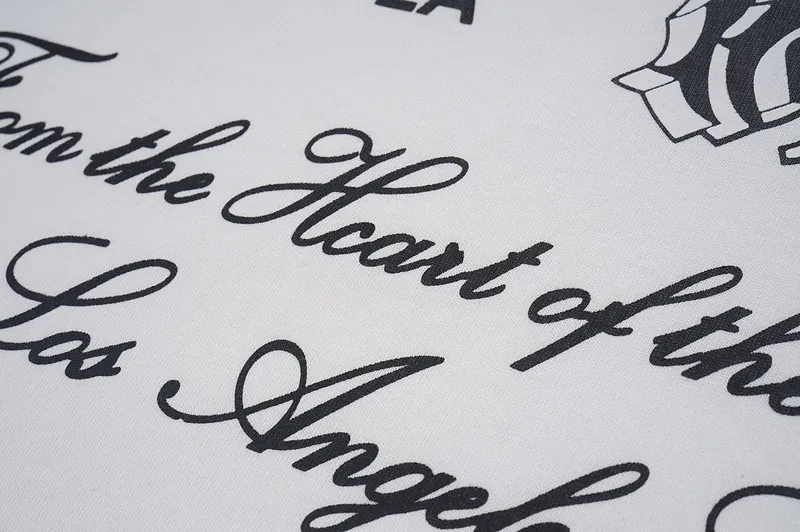 LA
From the Heart of the
Los Angeles